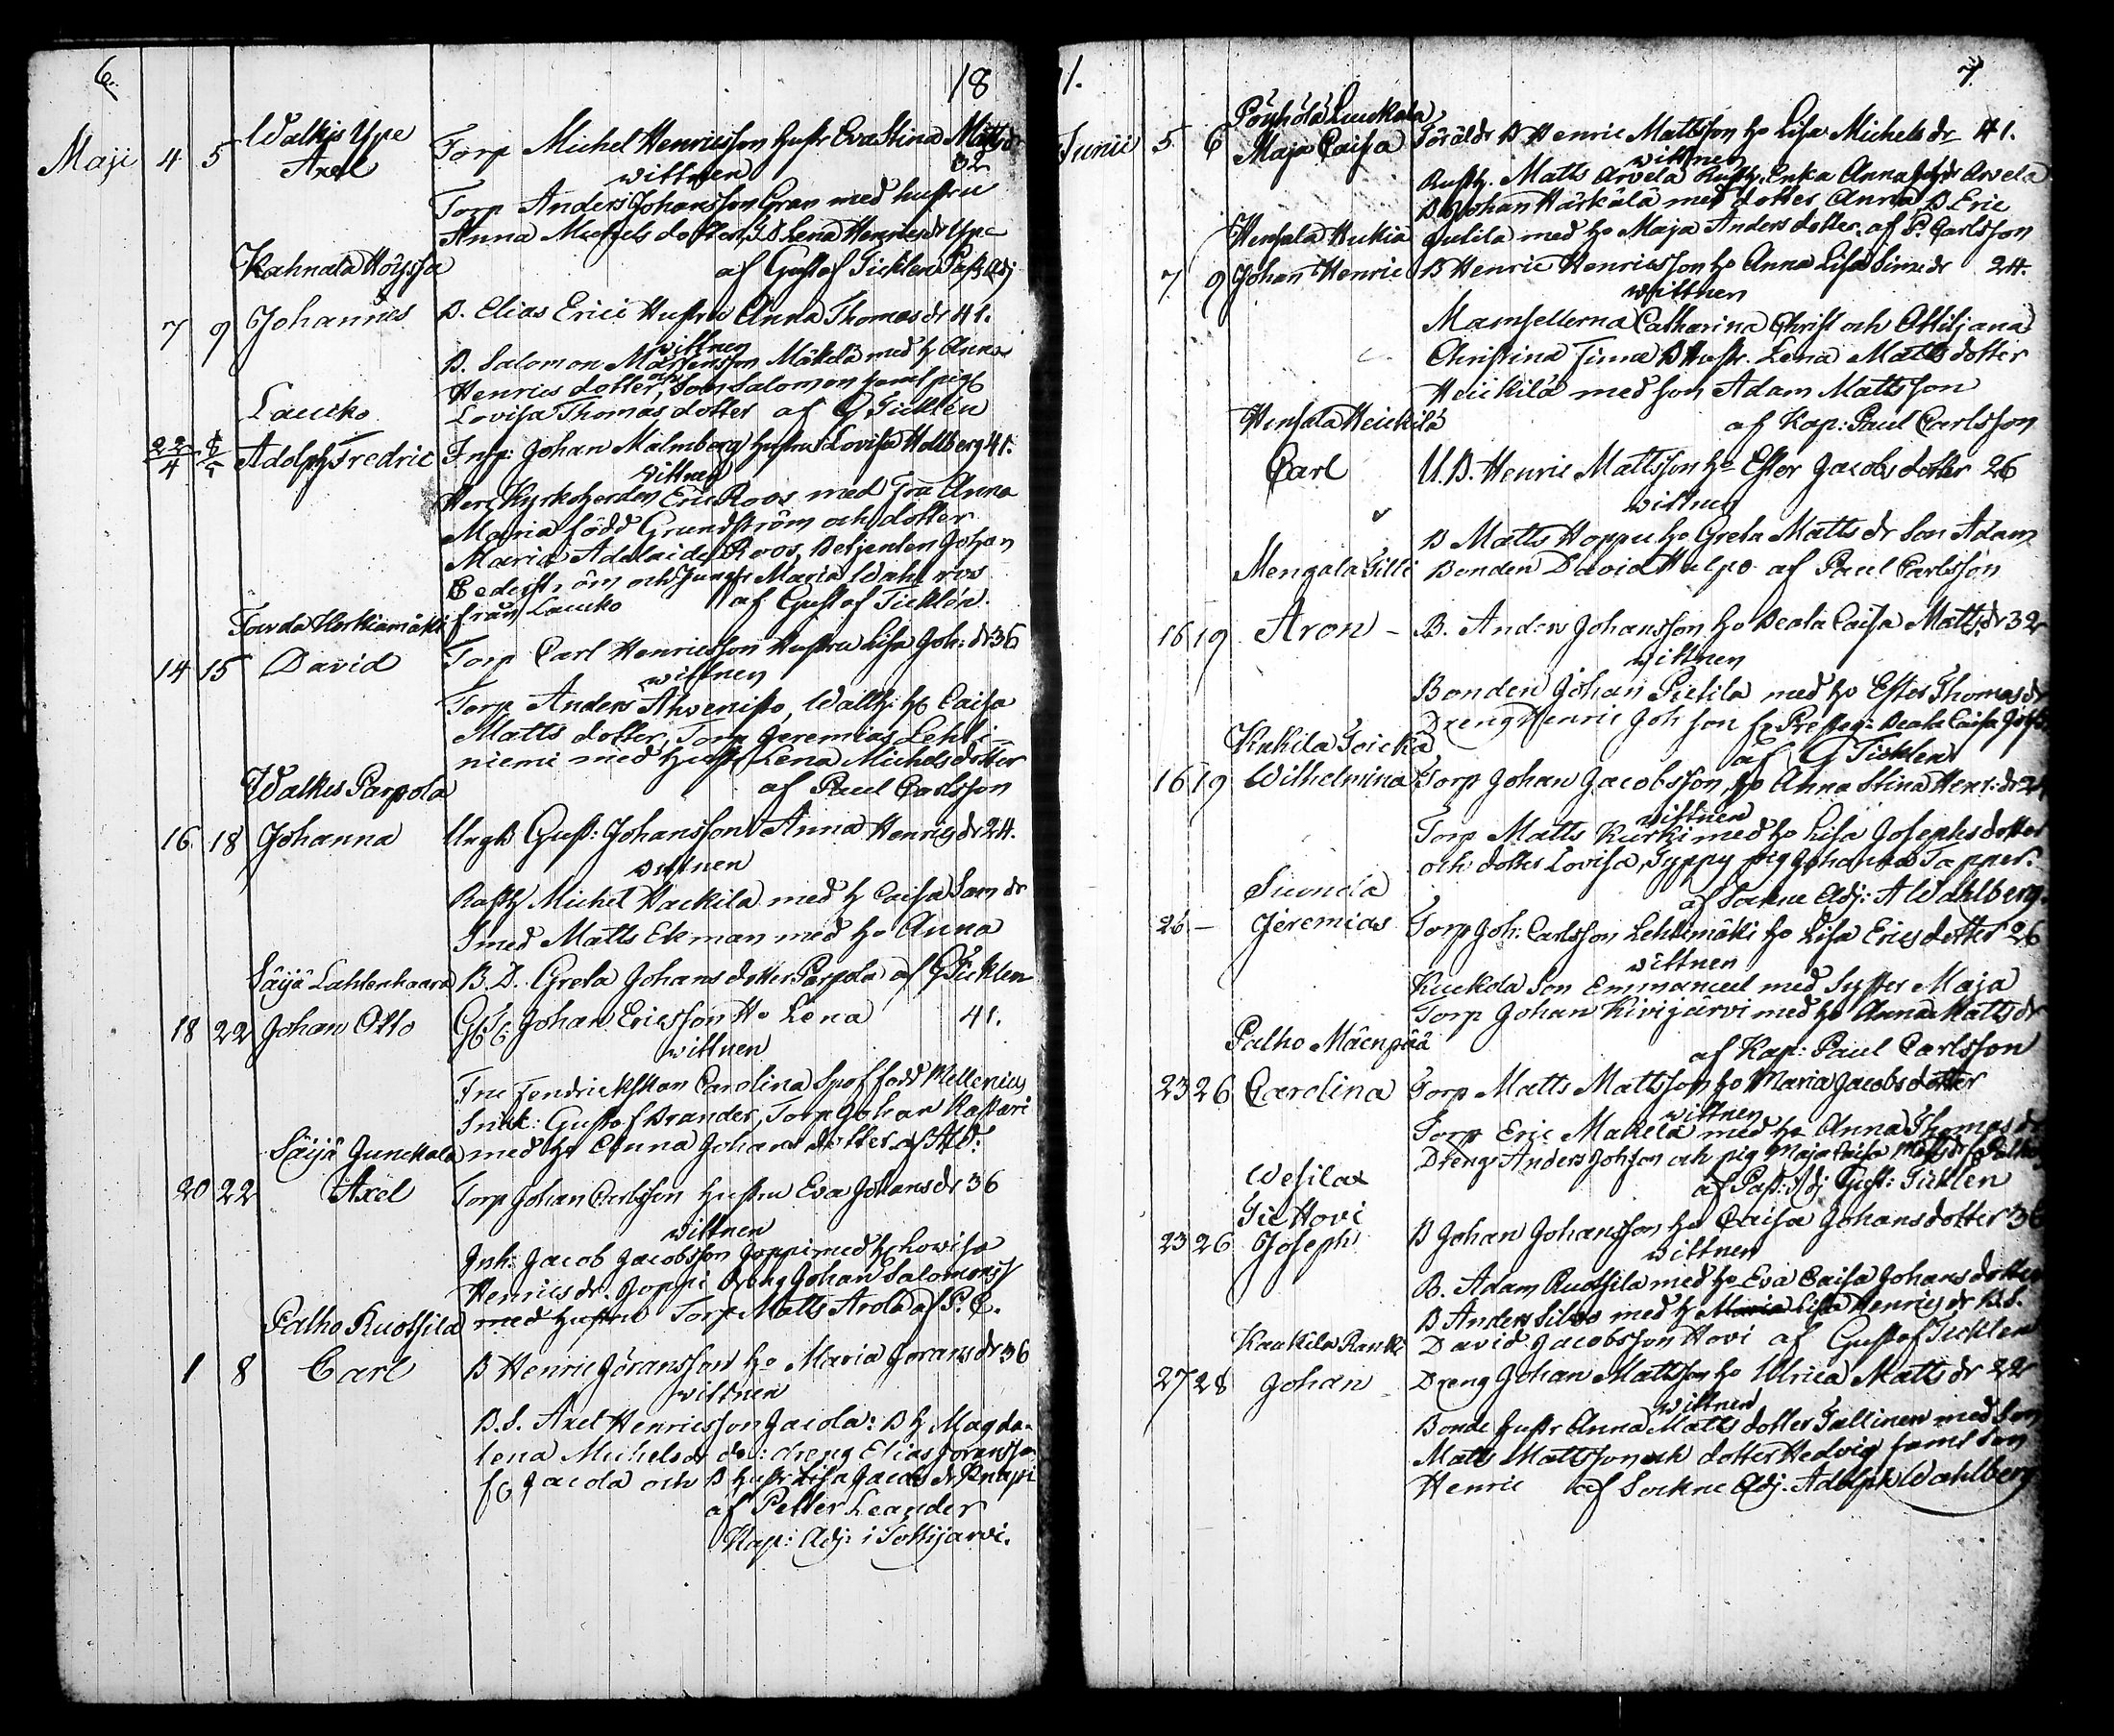 6. 18
Walkjs Ype
Maji 4 5 Axel Torp Michel Henricsson hustr Eva Stina Mattsdr
wittnen 32
Torp Anders Johansson Gran med hustru
Anna Michels dotter, Lena Henricsdr Ype
Kahnala Höyssa af Gustaf Ticklen Past Adj
7 9 Johannes B. Elias Erici Hustru Anna Thomas dr 41.
wittnen
B. Salomon Mårtensson Mäkelä med h Anna
Henrics dotter, Son Salomon samt pig
Laucko Lovisa Thomas dotter af G Ticklén
22/4 Adolph Fredric Insp: Johan Malmberg hustru Lovisa Hollberg 41.
wittnen
Herr Kyrkoherden Eric Roos med Fru Anna
Maria född Grundström och dotter
Maria Adelaide Roos, Betjenten Johan
Cederström och Jungfr Maria Wahlroos
från Laucko af Gustaf Ticklén.
Towda Korkiamäki
14 15 David Torp Carl Henricsson Hustru Lisa Joh: dr 36
wittnen
Torp Anders Ahvenisto, Wallh: h Caisa
Matts dotter, Torp Jeremias Lehti-
niemi med hustr Lena Michelsdotter
Walkis Parpola af Paul Carlsson
16 18 Johanna Ungk Gust: Johansson Anna Henrigs dr 24.
wittnen
Rusth Michel Hackila med h Caisa Sam dr
Smed Matts Ekman med ho Anna
Säijä Lahlenhaara B. D. Greta Johans dotter Parpola af G Ticklen
18 22 Johan Otto Johan Ericsson Ho Lena 41.
wittnen
Fru Fendrickskan Carolina Spof född Mellenius
Snick: Gustof Brander, Torp Johan Kastari
med ho Anna Johans dotter af AW:
Säijä Junckala
20 22 Axel Torp Johan Carlsson hustru Eva Johans dr 36
wittnen
Inh: Jacob Jacobsson Joppi med h Lowisa
Henrics dr. Joppi Dreng Johan Salomonss
med hustru Torp Matts Arola af P. C.
Palho Ruotsila
1 8 Carl B Henric Göransson ho Maria Görans dr 36
wittnen
B. S. Axel Henricsson Jacola: B h Magda-
lena Michels dr do: dreng Elias Göransson
fr Jacola och B hustr Lisa Jacobs dr Knapi
af Petter Leander
Kap: Adj: i Tottijarvi.
1. 7.
Pöyhölä Luuckala
Junii 5 6 Maja Caisa Föräldr B Henric Mattsson ho Lisa Michels dr 41.
wittnen
Rusth. Matts Arvela Rusth. Enka Anna Joh dr Arvela
B Johan Härkälä med dotter Anna B Eric
Hensala Hukia Gulila med ho Maja Anders dotter af P. Carlsson
7 9 Johan Henric B Henric Henricsson ho Anna Lisa Sim: dr 24.
wittnen
Mamsellerna Catharina Christ och Ottiljana
Christina Finna B Hustr. Lena Matts dotter
Heickilä med son Adam Mattsson
Hensala Heickilä af Kap: Paul Carlsson
Carl U. B. Henric Mattsson ho Ester Jacobs dotter 26
wittnen
B Matts Hoppu ho Greta Matts dr Son Adam
Mengala Tilli Bonden David Hulpo af Paul Carlsson
16 19 Aron - B. Anders Johansson ho Beata Caisa Matts: dr 32
wittnen
Bonden Johan Pietila med ho Ester Thomas dr
Dreng Henric Joh son Beata Caisa
Kukila Toicka af G Ticklen
16 19 Wilhelmina Torp Johan Jacobsson, ho Anna Stina Henr: dr 24
wittnen
Torp Matts Kurki med ho Lisa Josephs dotter
och dotter Lovisa, Syppy pig Johanna Tapper.
Suonola af Sockne Adj: A Wahlberg.
26 - Jeremias Torp Joh: Carlsson Lehtimäki ho Lisa Erics dotter 26
wittnen
Kuckola Son Emmanuel med Syster Maja
Torp Johan Kirijärvi med ho Anna Matts dr
Palho Mäenpää af Kap: Paul Carlsson
23 26 Carolina Torp Matts Mattsson ho Maria Jacobs dotter
wittnen
Torp Eric Makela med ho Anna Thomas dr
Dreng Anders Johson och pig Maja Caisa Matts dr fr Palho
Wesilax af Past: Adj Gust: Ticklen
Tie Hovi
23 26 Joseph B Johan Johansson ho Caisa Johans dotter 36
wittnen
B. Adam Ruotsila med ho Eva Caisa Johans dotter
B Anders Silvo med h Maria Lisa Henrigs dr B. S.
Kaukila Ranki David Jacobsson Hovi af Gustaf Ticklen
27 28 Johan Dreng Johan Mattsson ho Ulrica Matts dr 22
wittnen
Bonde hustr Anna Matts dotter Tallinen med Son
Matts Mattsson och dotter Hedvig samt Son
Henric af Sockne Adj. Adolph Wahlberg